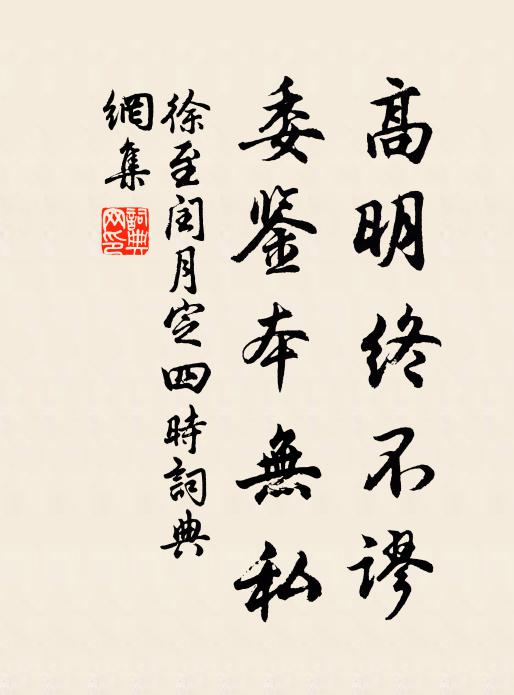 高明終不謬
委鉴本無私
徐至闰月定四時詞典
網集
詞典網印